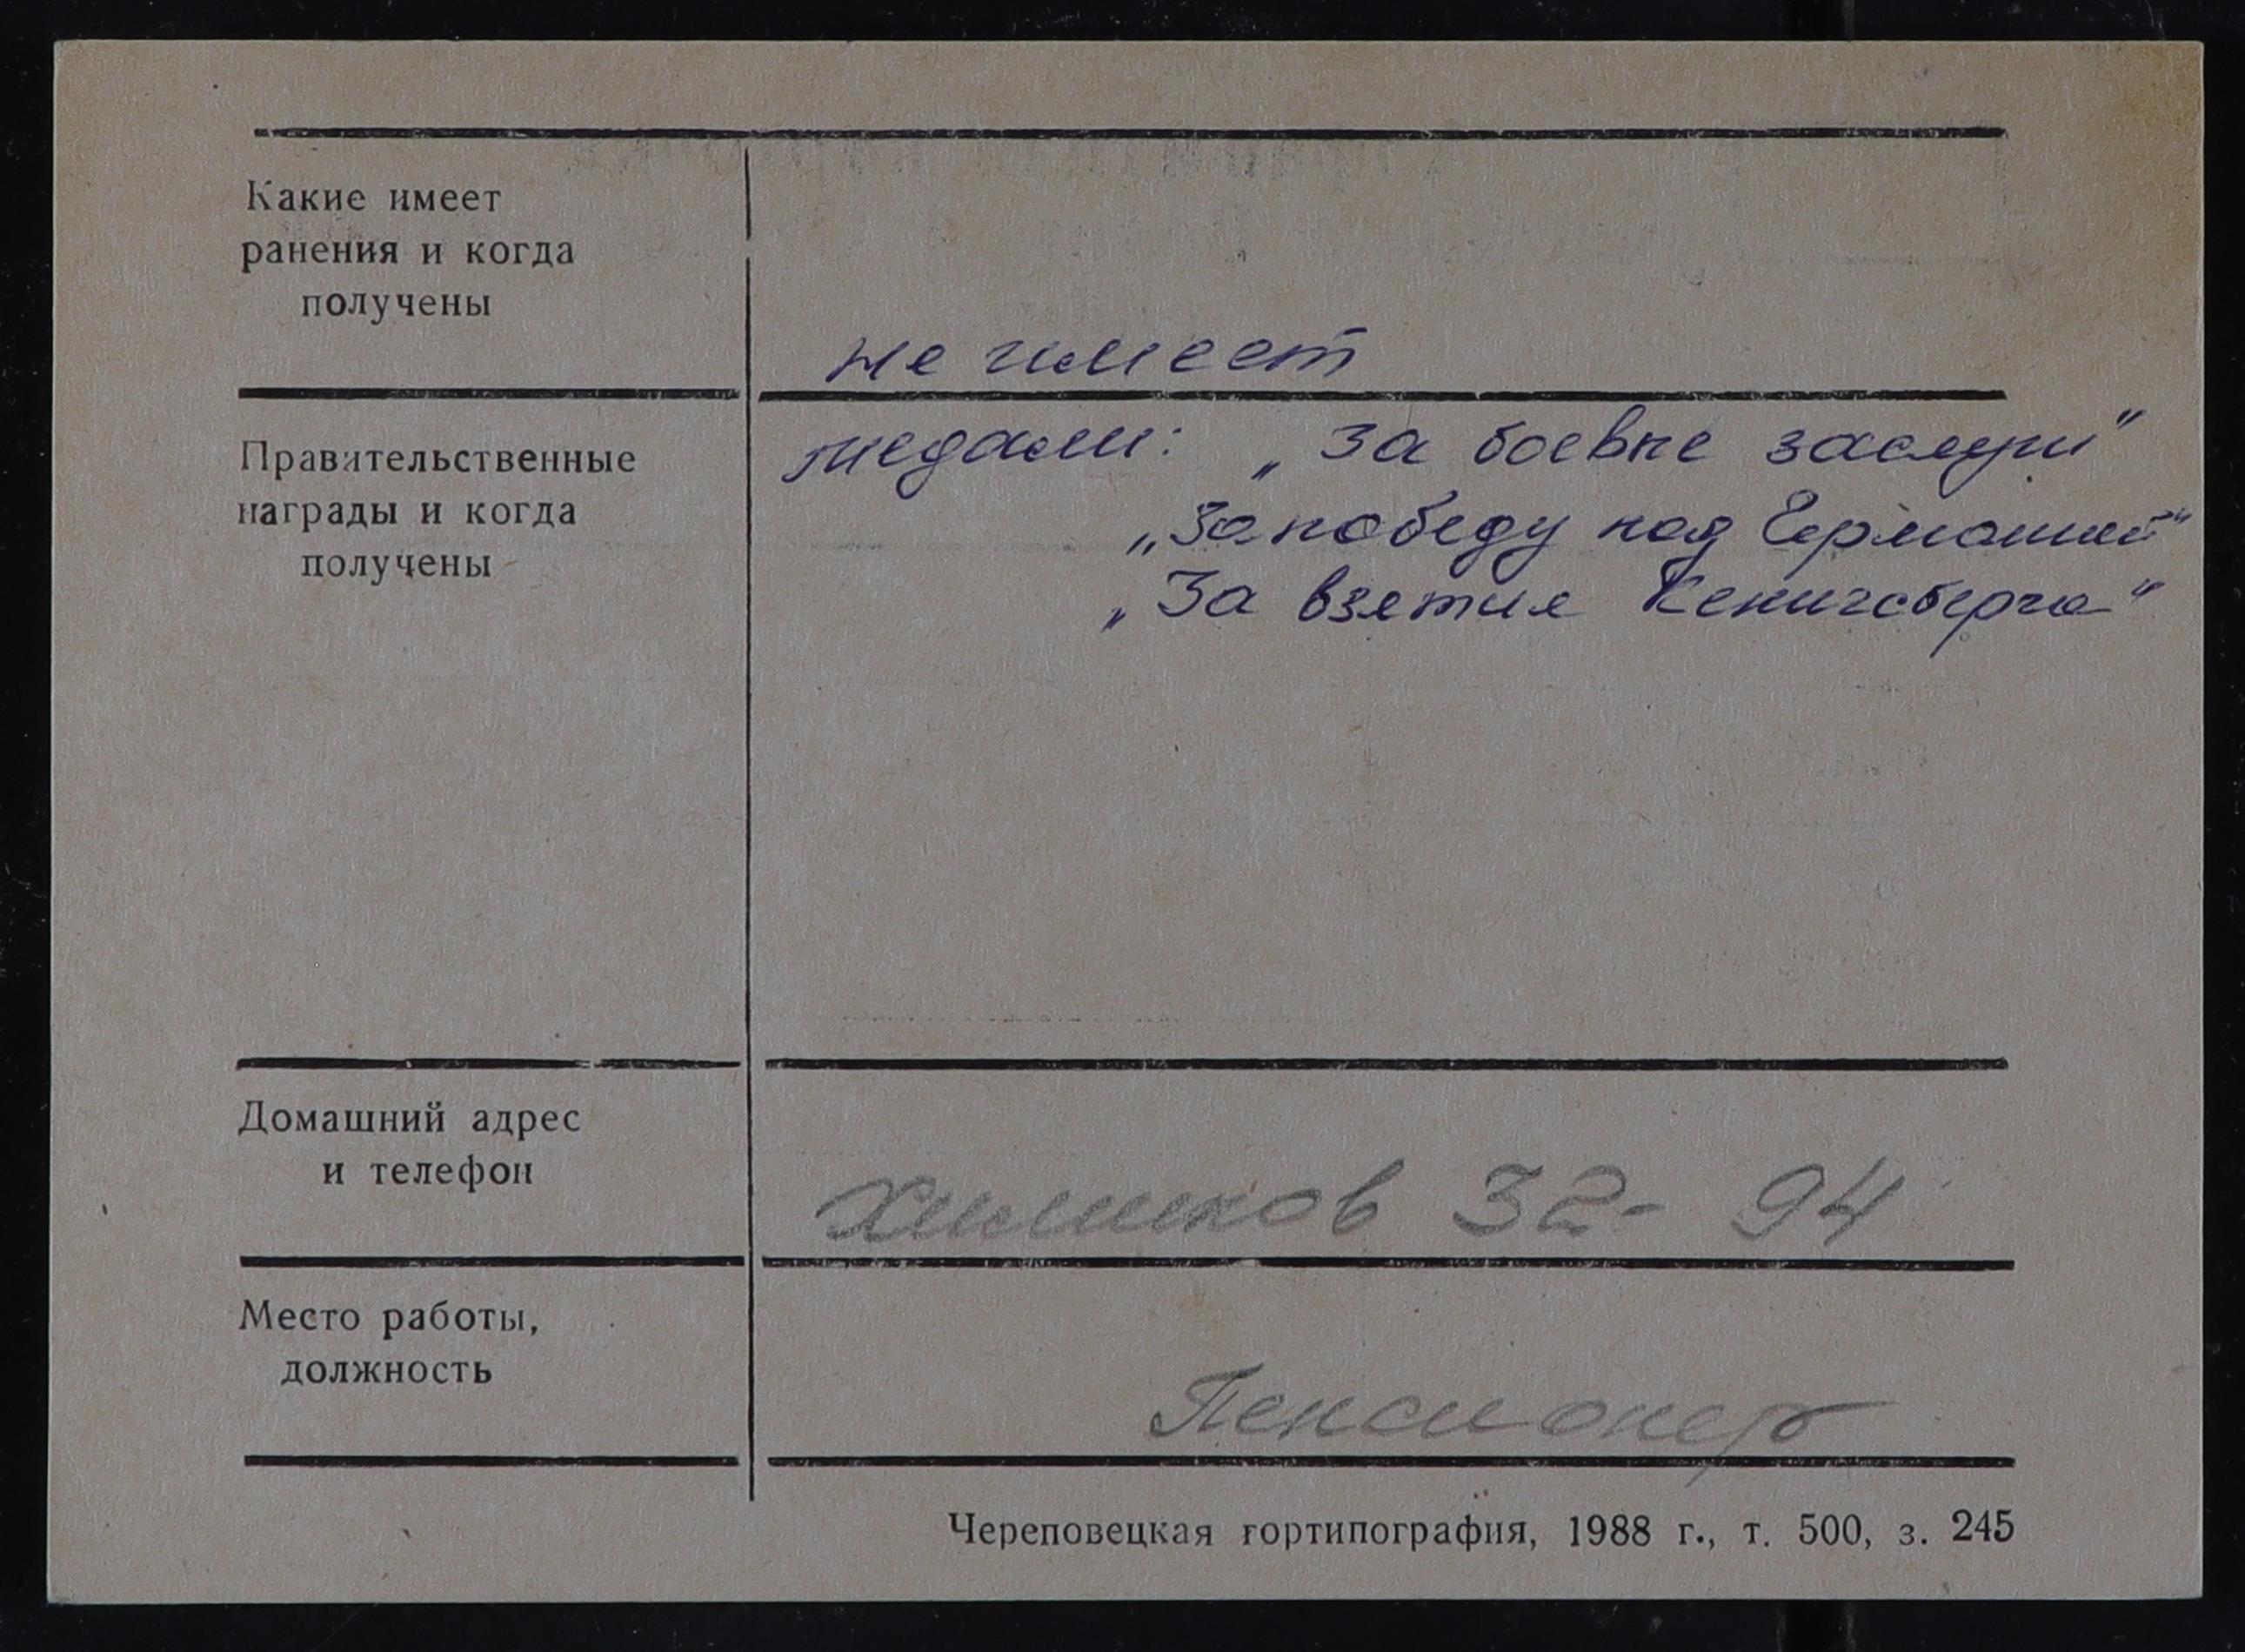 Какие имеет
ранения и когда
получены
не имеет
Правительственные
награды и когда
получены
медали: „За боевые заслуги"
„За победу над Германией"
„За взятие Кенигсберга"
Домашний адрес
и телефон
Химиков 32- 94
Место работы,
должность
Пенсионер
Череповецкая гортипография, 1988 г., т. 500, з. 245